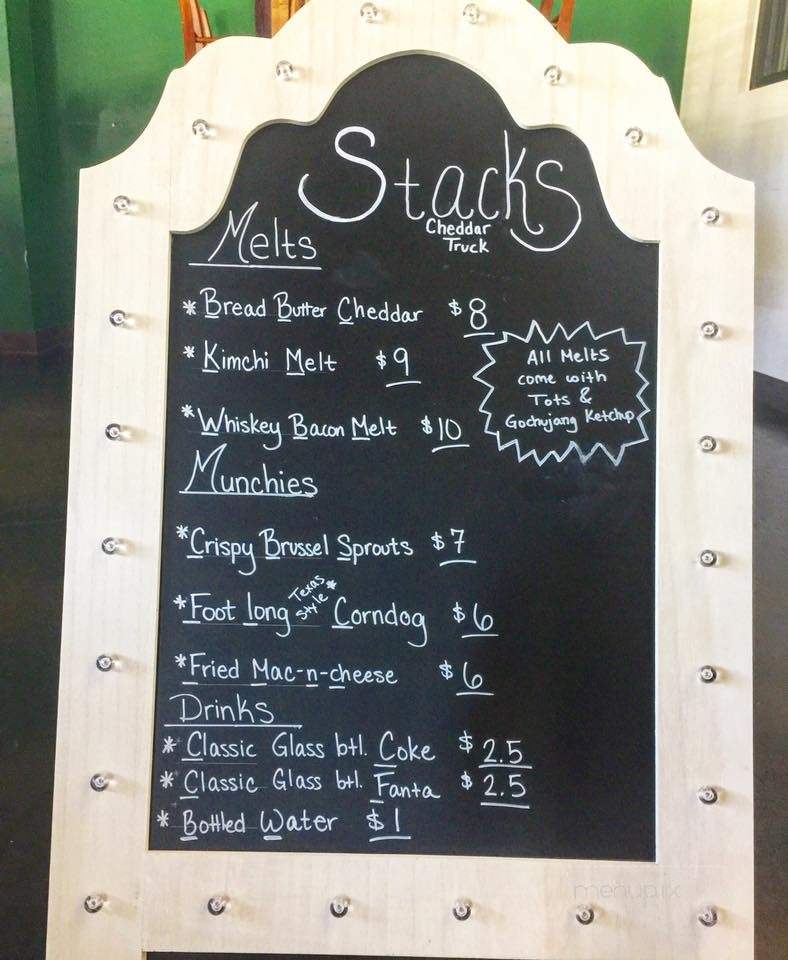 Stacks
Cheddar
Truck
Melts
* Bread Butter Cheddar $8
* Kimchi Melt $9
* Whiskey Bacon Melt $10
All Melts
come with
Tots &
Gochujang Ketchup
Munchies
* Crispy Brussel Sprouts $7
* Foot long Texas Style * Corndog $6
* Fried Mac-n-cheese $6
Drinks
* Classic Glass btl. Coke $2.5
* Classic Glass btl. Fanta $2.5
* Bottled Water $1
menupix